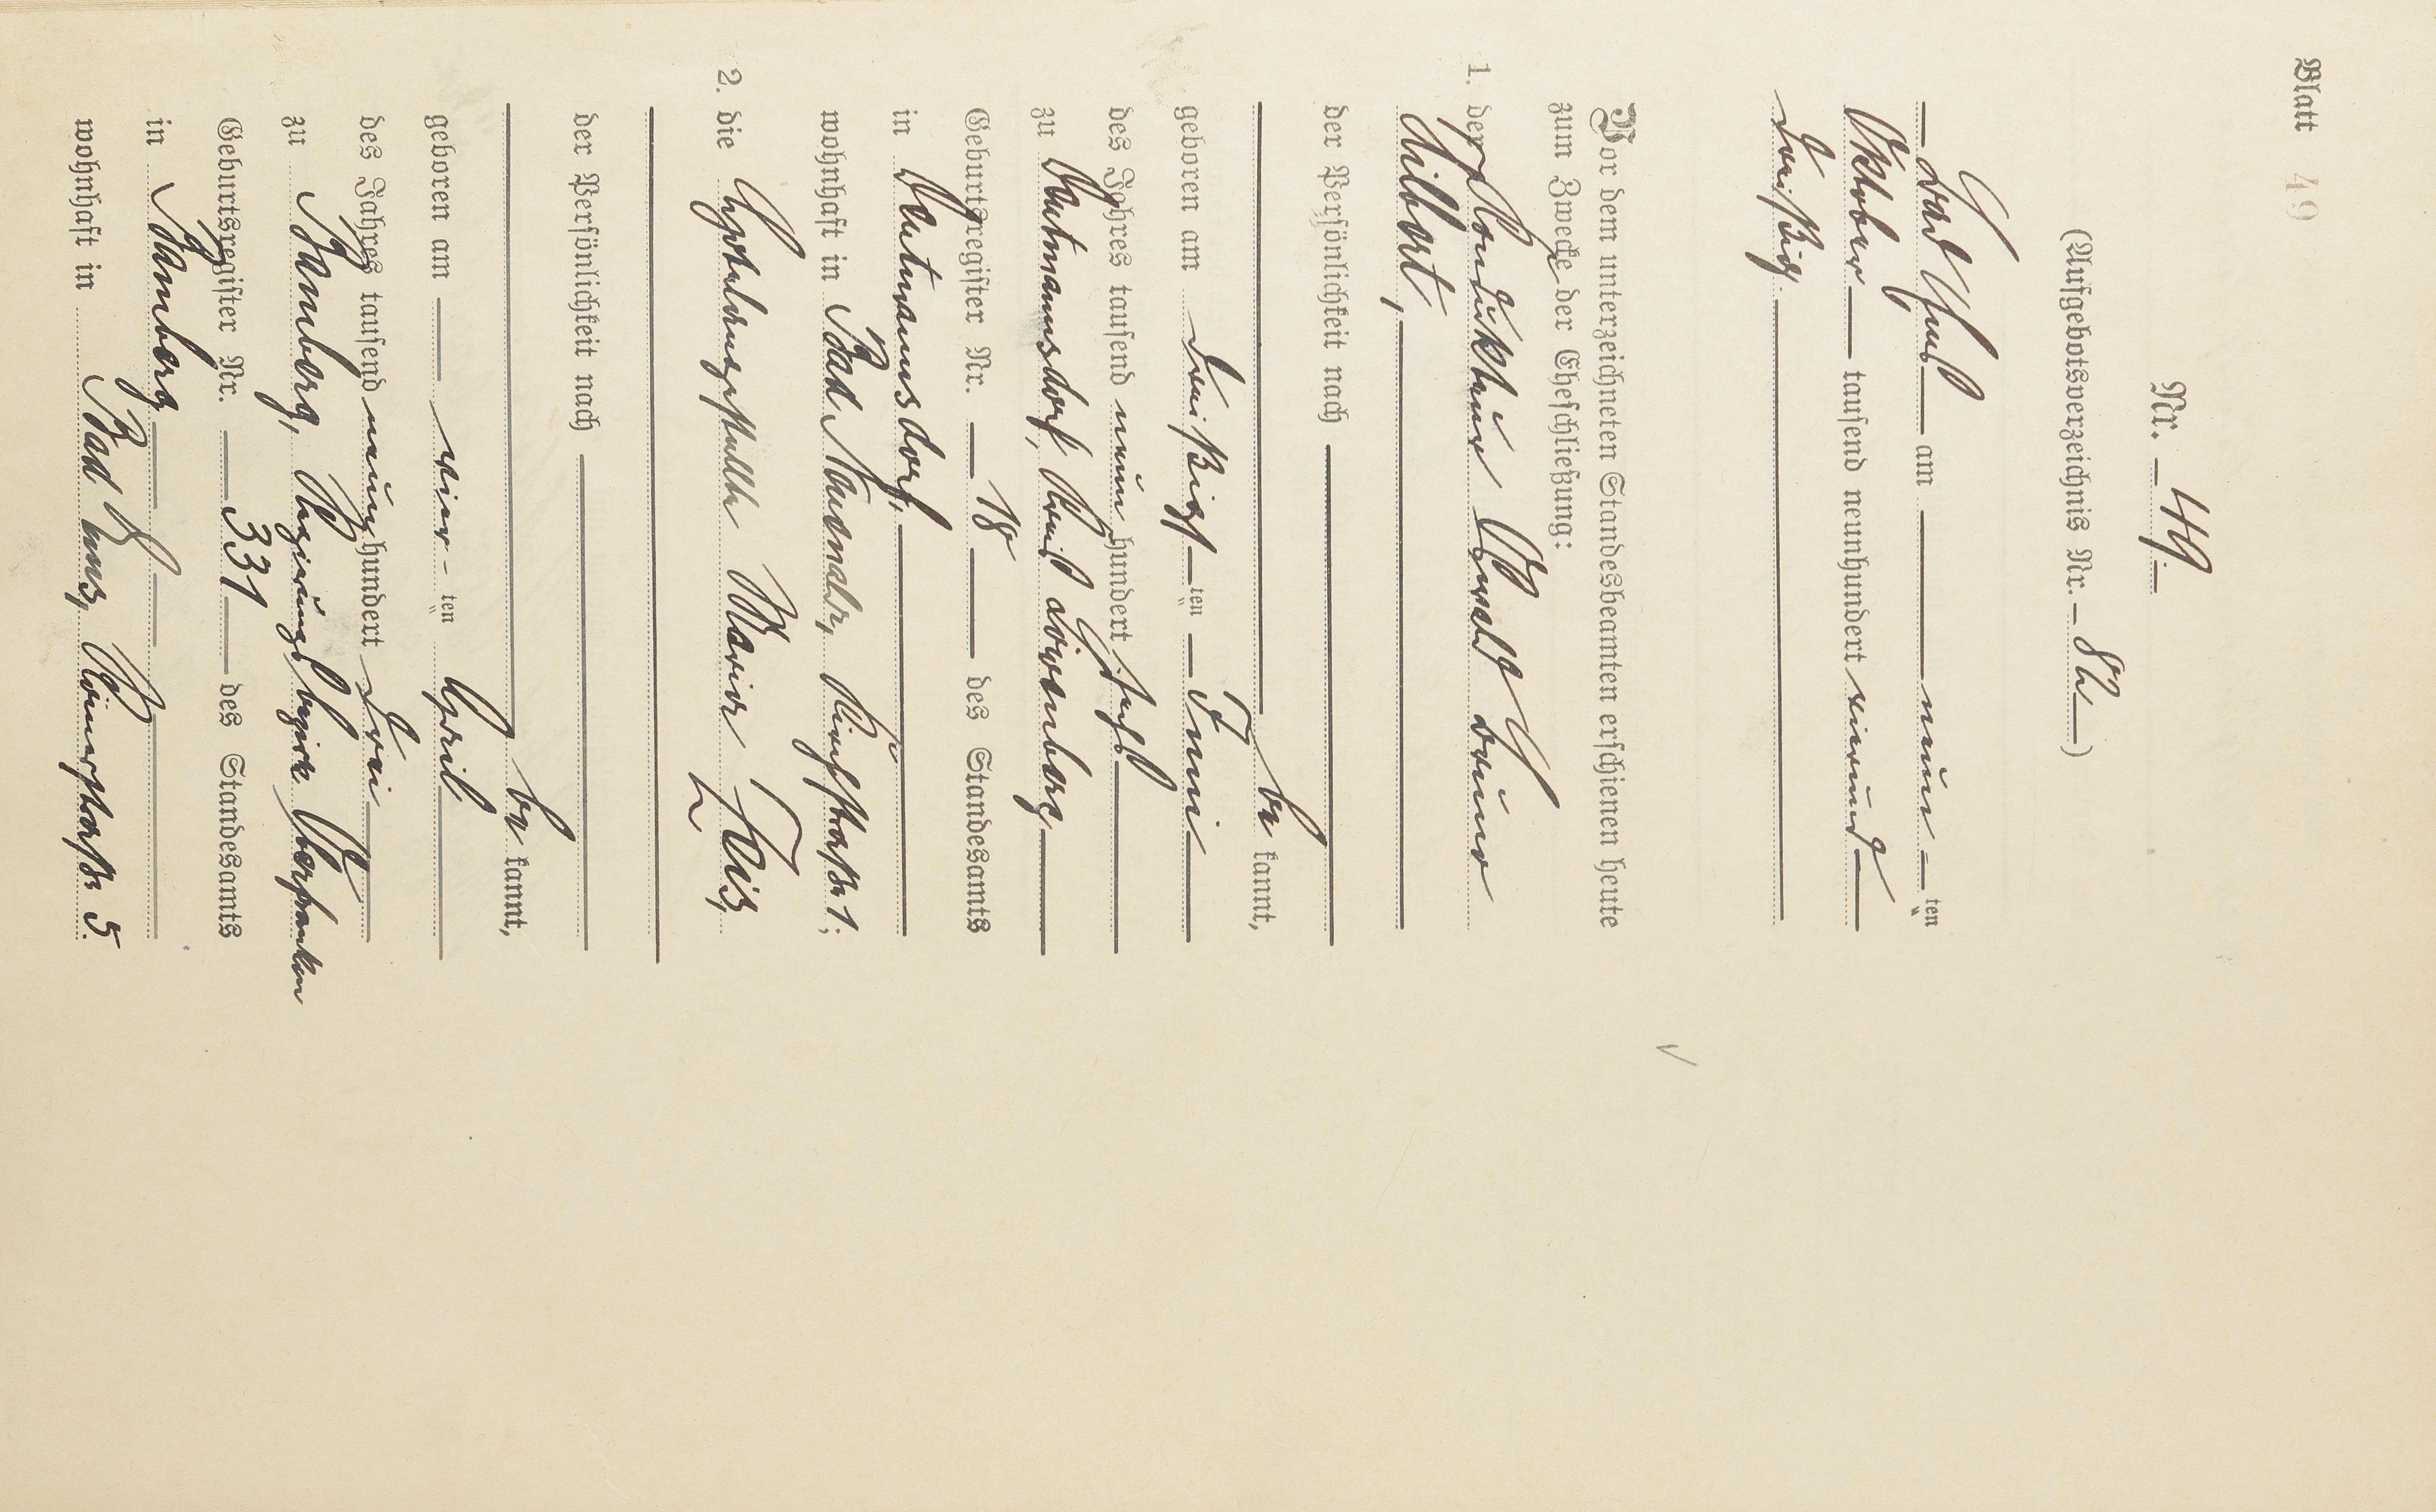 Blatt 49
Nr. 49.
(Aufgebotsverzeichnis Nr. 82)
Bad Ems am neun ten
Oktober tausend neunhundert vierund
dreißig.
Vor dem unterzeichneten Standesbeamten erschienen heute
zum Zwecke der Eheschließung:
1. der Konditor Oswald Bruno
Hilbert,
der Persönlichkeit nach
be kannt,
geboren am dreißigsten Juni
des Jahres tausend neun hundert sechs
zu Deutmannsdorf, Kreis Löwenberg,
Geburtsregister Nr. 18 des Standesamts
in Deutmannsdorf,
wohnhaft in Bad Nauheim, 1;
2. die Maria
der Persönlichkeit nach
be kannt,
geboren am vier ten April
des Jahres tausend neun hundert drei
zu Bamberg, Regierungsbezirk Oberfranken
Geburtsregister Nr. 331 des Standesamts
in Bamberg
wohnhaft in Bad Ems, Römerstraße 5.